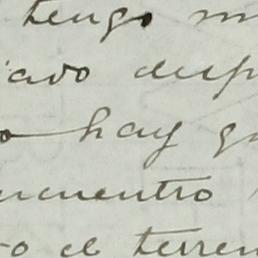 tengo m
iado desp
o hay qu
ncuentro
o el terren